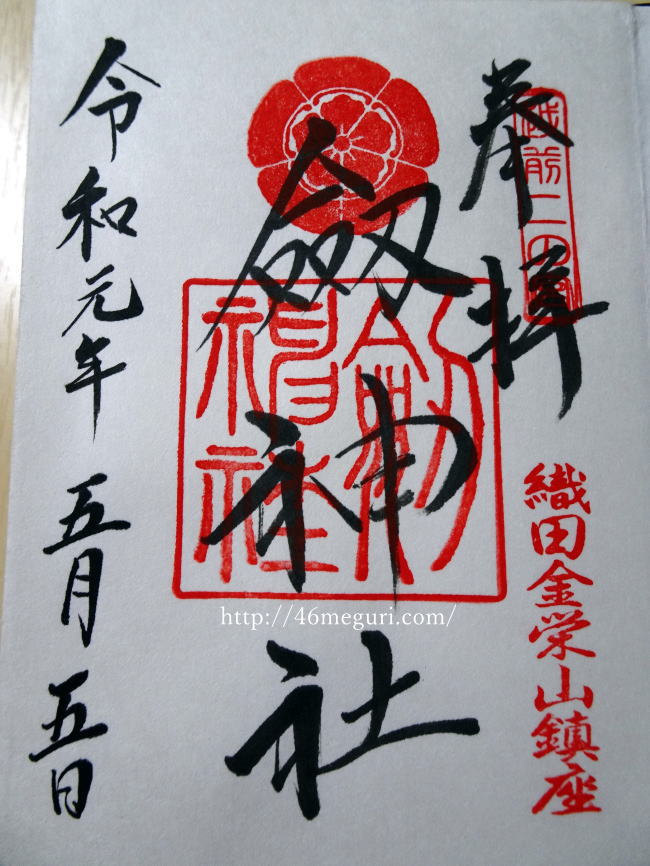 越前二
奉拝
織田金栄山鎮座
劔神社
劔神社
令和元年 五月 五日
http://46meguri.com/